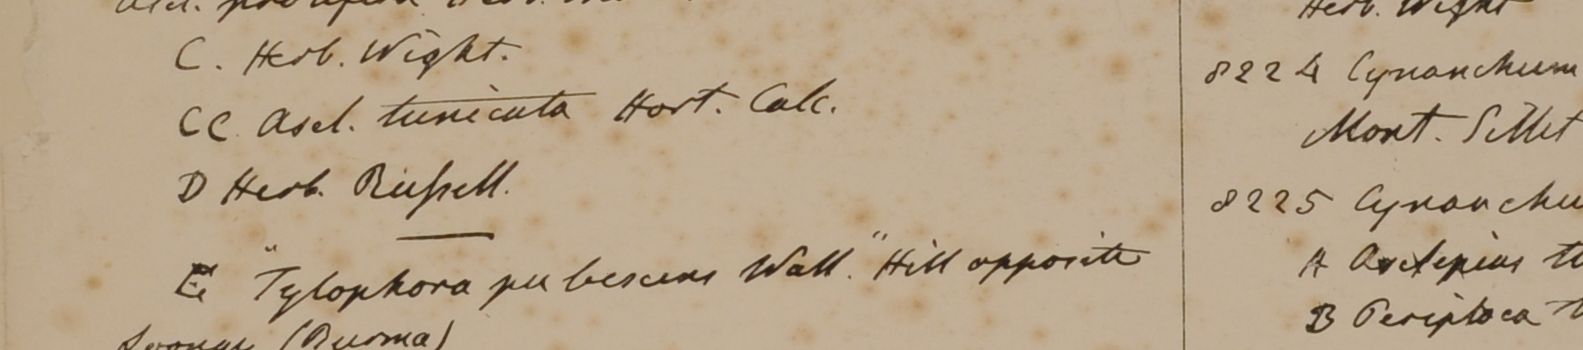 C. Herb. Wight.
CC Ascl. tunicata Hort. Calc.
D Herb. Russell.
E "Tylophora pubescens Wall." Hill opposite
(Burma)
Herb. Wight
8224 Cynanchum
Mont. Sillet
8225 Cynanchu
A Asclepias
B Periploca